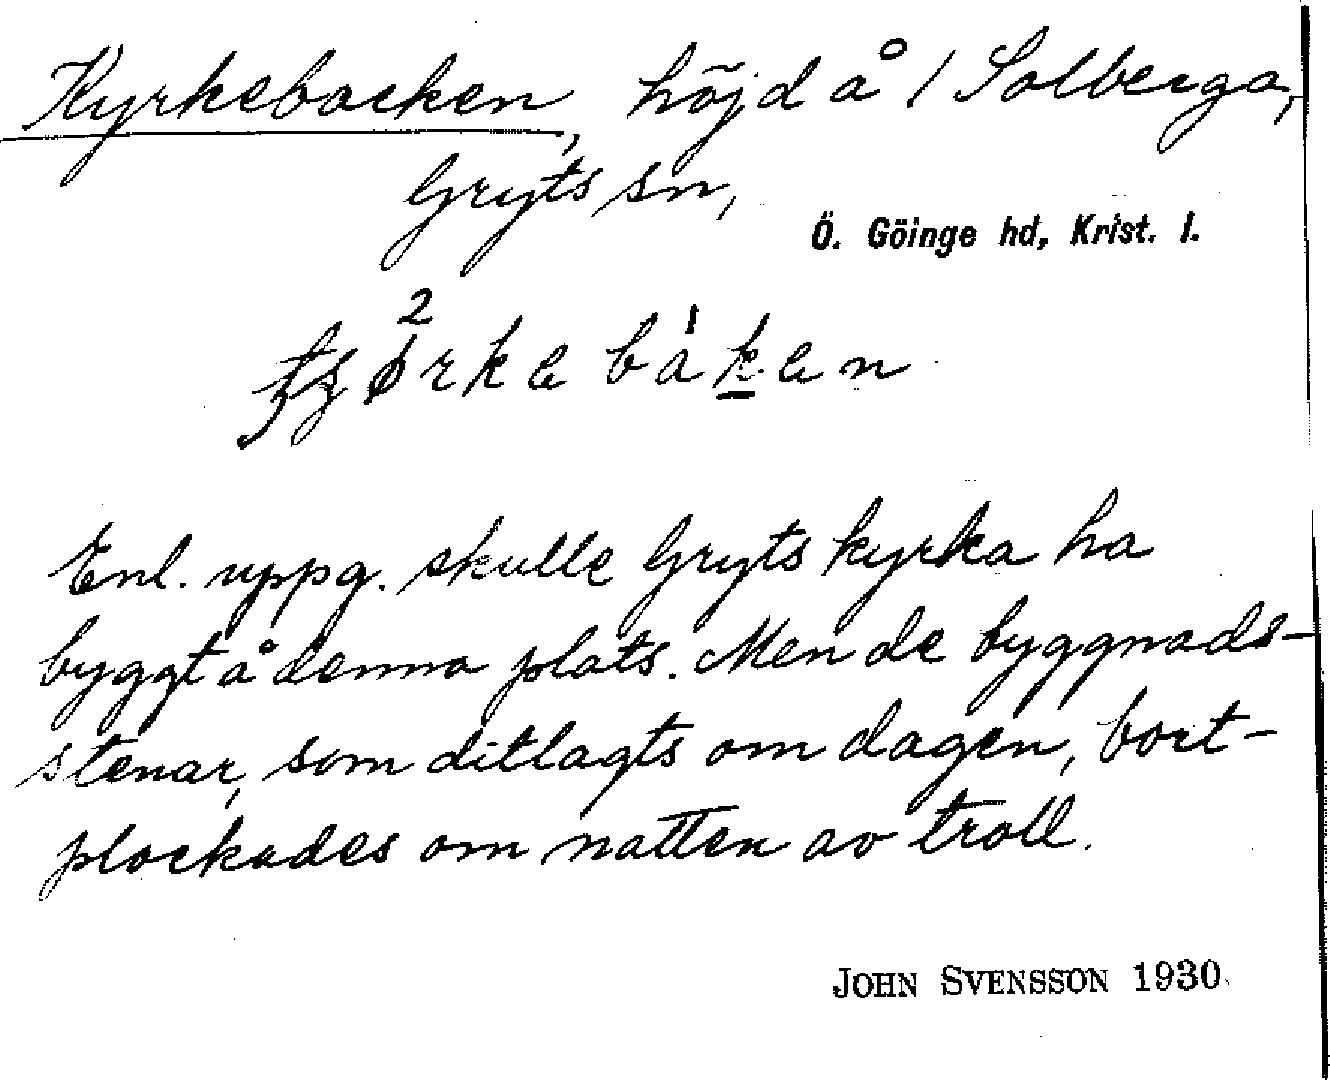 Kyrkebacken, höjd å 1 Solberga,
Gryts sn,
Ö. Göinge hd, Krist. l.
Enl. uppg. skulle Gryts kyrka ha
byggt å denna plats. Men de byggnads-
stenar, som ditlagts om dagen, bort-
plockades om natten av troll.
JOHN SVENSSON 1930